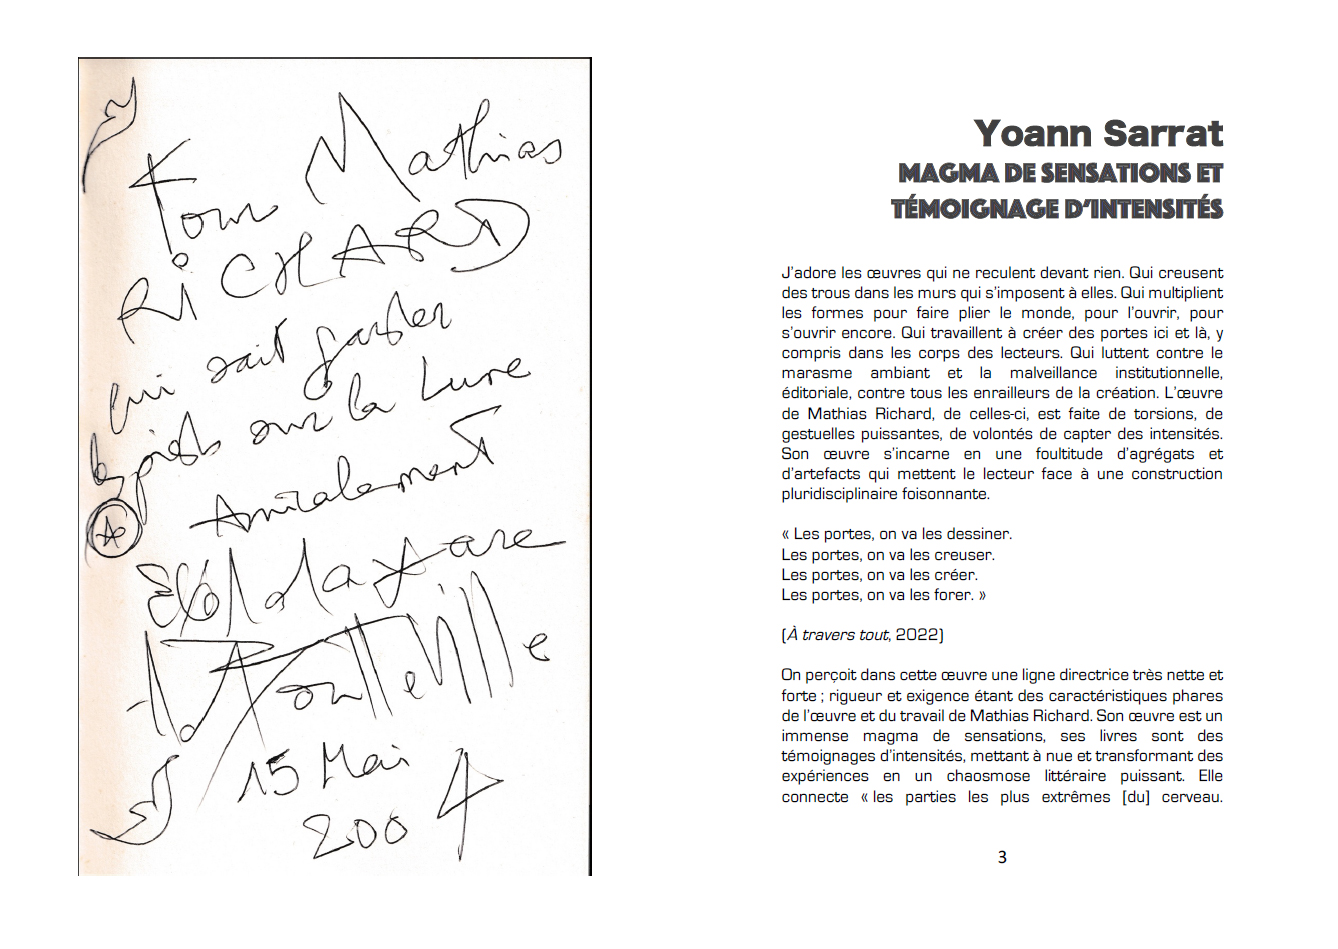 Pour Mathias
RiCHARD
qui sait garder
les pieds sur la Lune
Amicalement
15 Mai
2004
Yoann Sarrat
MAGMA DE SENSATIONS ET
TÉMOIGNAGE D'INTENSITÉS
J'adore les œuvres qui ne reculent devant rien. Qui creusent
des trous dans les murs qui s'imposent à elles. Qui multiplient
les formes pour faire plier le monde, pour l'ouvrir, pour
s'ouvrir encore. Qui travaillent à créer des portes ici et là, y
compris dans les corps des lecteurs. Qui luttent contre le
marasme ambiant et la malveillance institutionnelle,
éditoriale, contre tous les enrailleurs de la création. L'œuvre
de Mathias Richard, de celles-ci, est faite de torsions, de
gestuelles puissantes, de volontés de capter des intensités.
Son œuvre s'incarne en une foultitude d'agrégats et
d'artefacts qui mettent le lecteur face à une construction
pluridisciplinaire foisonnante.
« Les portes, on va les dessiner.
Les portes, on va les creuser.
Les portes, on va les créer.
Les portes, on va les forer. »
(À travers tout, 2022)
On perçoit dans cette œuvre une ligne directrice très nette et
forte ; rigueur et exigence étant des caractéristiques phares
de l'œuvre et du travail de Mathias Richard. Son œuvre est un
immense magma de sensations, ses livres sont des
témoignages d'intensités, mettant à nue et transformant des
expériences en un chaosmose littéraire puissant. Elle
connecte « les parties les plus extrêmes [du] cerveau.
3